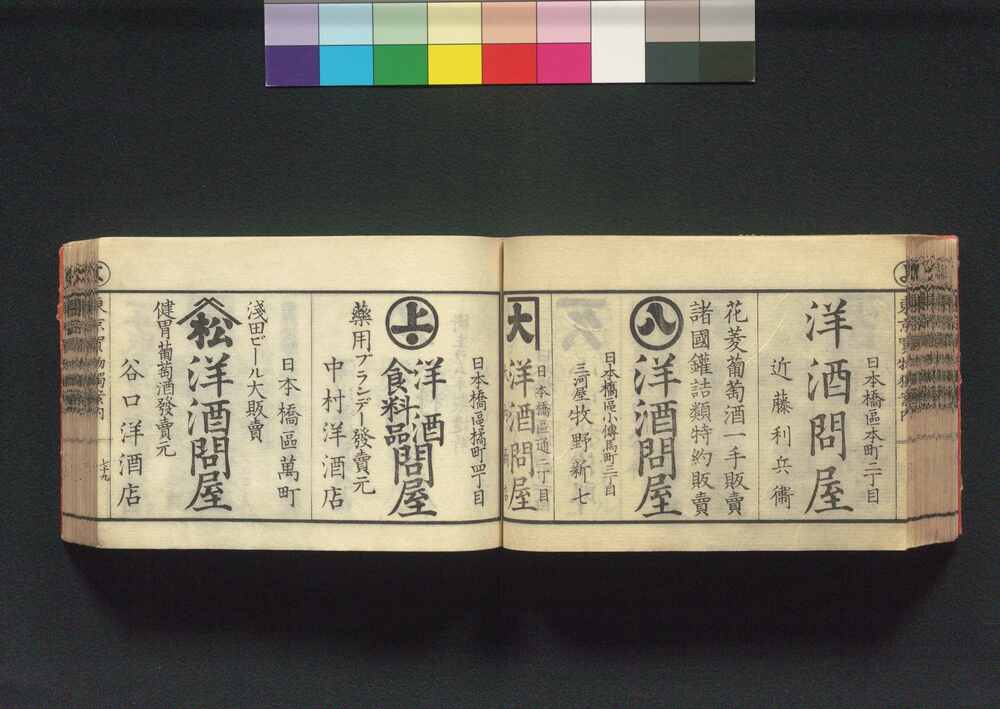 日本橋區本町二丁目
洋酒問屋
近藤利兵衞
花菱葡萄酒一手販賣
諸國鑵詰類特約販賣
八
洋酒問屋
日本橋區小傳馬町三丁目
三河屋 牧野新七
日本橋區通二丁目
大
洋酒問屋
日本橋區橘町四丁目
上
洋酒
食料品問屋
藥用ブランデー發賣元
中村洋酒店
日本橋區萬町
淺田ビール大販賣
松
洋酒問屋
健胃葡萄酒發賣元
谷口洋酒店